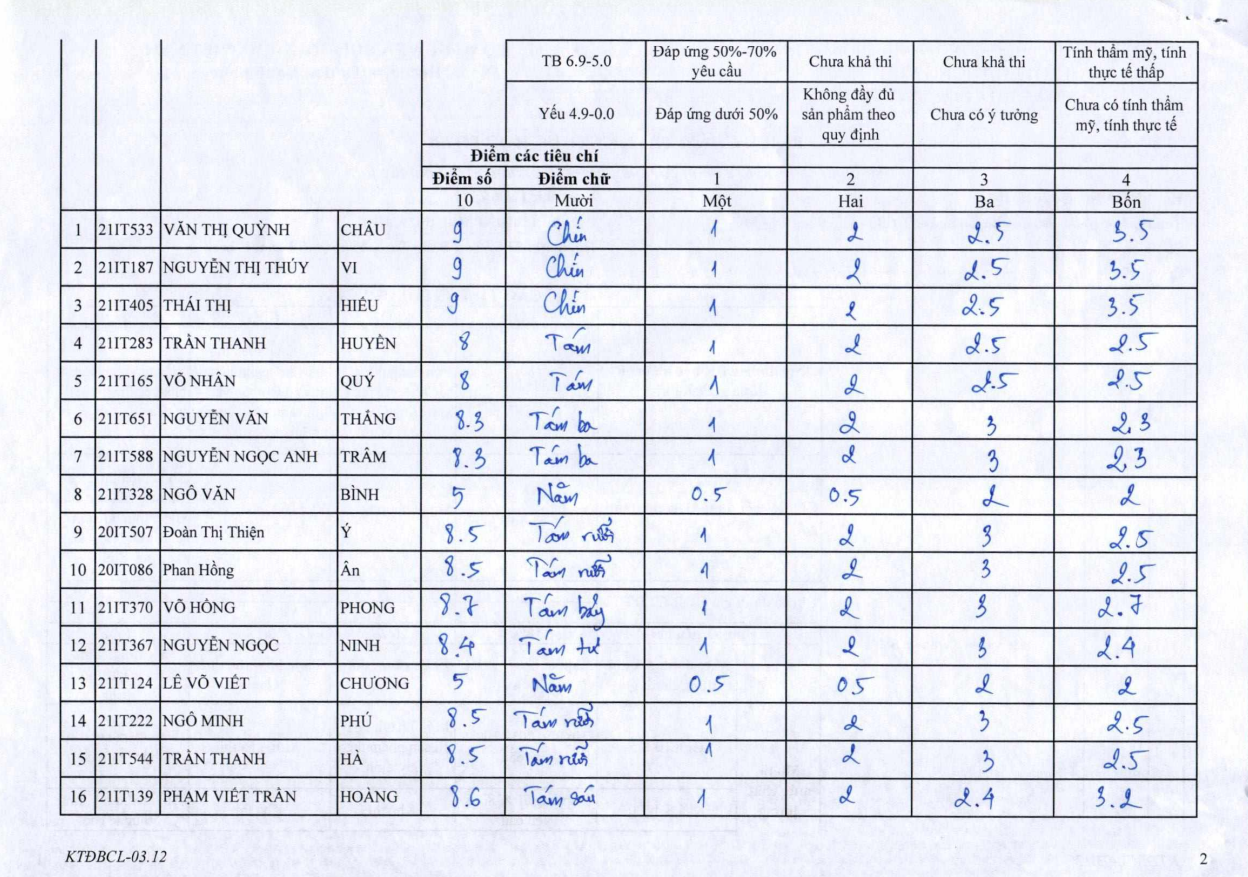 TB 6.9-5.0 Đáp ứng 50%-70% yêu cầu Chưa khả thi Chưa khả thi Tính thẩm mỹ, tính thực tế thấp
Yếu 4.9-0.0 Đáp ứng dưới 50% Không đầy đủ sản phẩm theo quy định Chưa có ý tưởng Chưa có tính thẩm mỹ, tính thực tế
Điểm các tiêu chí
Điểm số Điểm chữ 1 2 3 4
10 Mười Một Hai Ba Bốn
1 21IT533 VĂN THỊ QUỲNH CHÂU 9 Chín 1 2 2.5 3.5
2 21IT187 NGUYỄN THỊ THÚY VI 9 Chín 1 2 2.5 3.5
3 21IT405 THÁI THỊ HIẾU 9 Chín 1 2 2.5 3.5
4 21IT283 TRẦN THANH HUYỀN 8 Tám 1 2 2.5 2.5
5 21IT165 VÕ NHÂN QUÝ 8 Tám 1 2 2.5 2.5
6 21IT651 NGUYỄN VĂN THẮNG 8.3 Tám ba 1 2 3 2,3
7 21IT588 NGUYỄN NGỌC ANH TRÂM 8.3 Tám ba 1 2 3 2,3
8 21IT328 NGÔ VĂN BÌNH 5 Năm 0.5 0.5 2 2
9 20IT507 Đoàn Thị Thiện Ý 8.5 Tám rưỡi 1 2 3 2.5
10 20IT086 Phan Hồng Ân 8.5 Tám rưỡi 1 2 3 2.5
11 21IT370 VÕ HỒNG PHONG 8.7 Tám bảy 1 2 3 2.7
12 21IT367 NGUYỄN NGỌC NINH 8.4 Tám tư 1 2 3 2.4
13 21IT124 LÊ VÕ VIẾT CHƯƠNG 5 Năm 0.5 0.5 2 2
14 21IT222 NGÔ MINH PHÚ 8.5 Tám rưỡi 1 2 3 2.5
15 21IT544 TRẦN THANH HÀ 8.5 Tám rưỡi 1 2 3 2.5
16 21IT139 PHẠM VIẾT TRẦN HOÀNG 8.6 Tám sáu 1 2 2.4 3.2
KTĐBCL-03.12 2